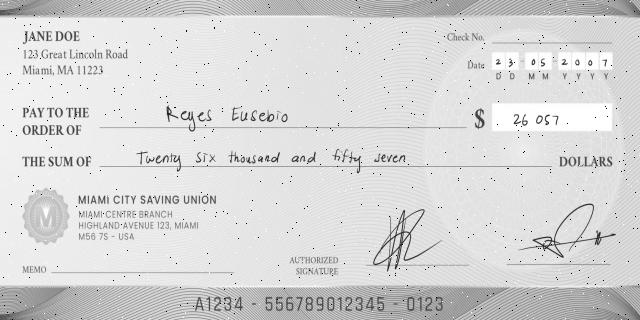 JANE DOE
123 Great Lincoln Road
Miami, MA 11223
Check No.
Date 23 - 05 - 2007
D D M M Y Y Y Y
PAY TO THE ORDER OF Reyes Eusebio $ 26 057
THE SUM OF Twenty six thousand and fifty seven DOLLARS
M
MIAMI CITY SAVING UNION
MIAMI CENTRE BRANCH
HIGHLAND AVENUE 123, MIAMI
M56 7S - USA
MEMO
AUTHORIZED
SIGNATURE
A1234 - 556789012345 - 0123